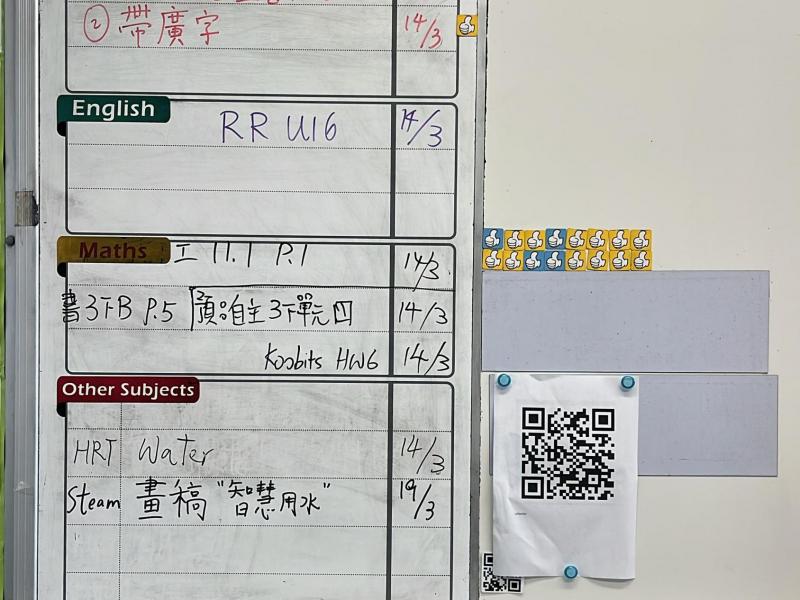 ② 帶廣字 14/3
English
RR U16 14/3
Maths
工 11.1 P.1 14/3
書3下B P.5 預:自主3下單元四 14/3
Koobits HW6 14/3
Other Subjects
HRT Water 14/3
Steam 畫稿 "智慧用水" 19/3